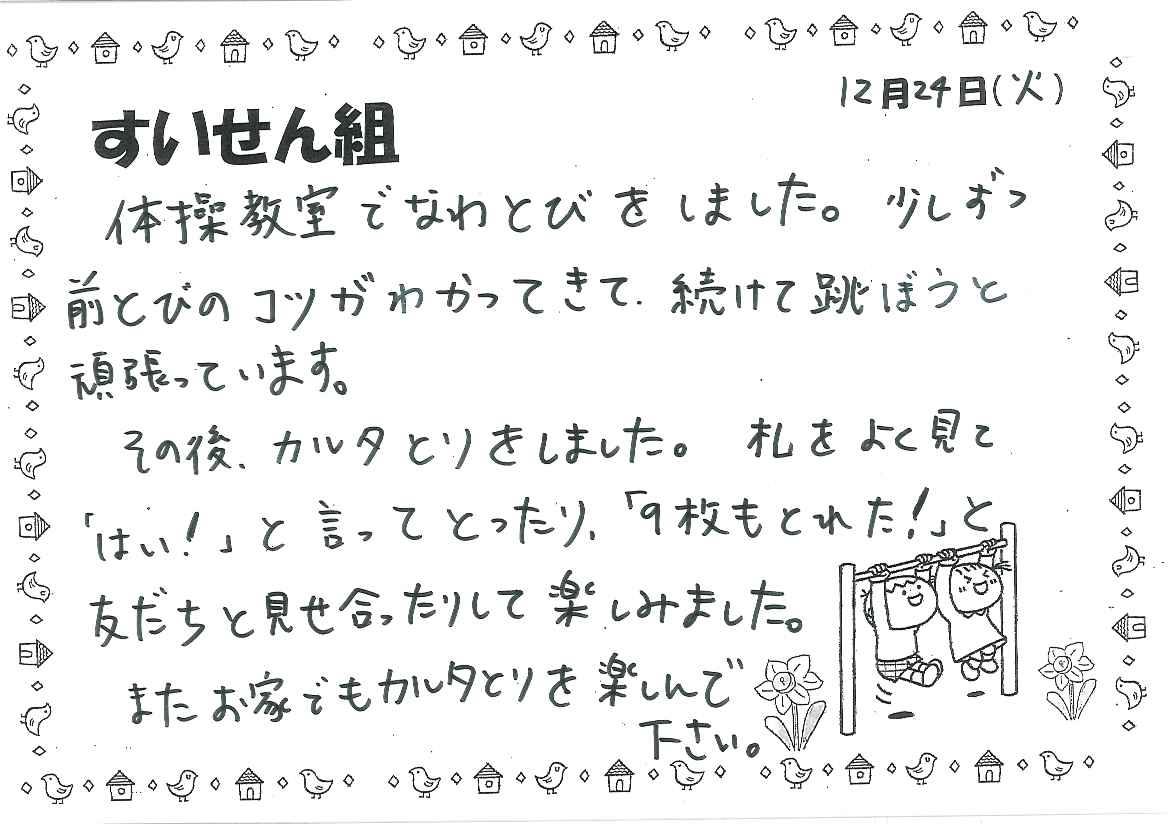 12月24日(火)
すいせん組
体操教室でなわとびをしました。少しずつ
前とびのコツがわかってきて、続けて跳ぼうと
頑張っています。
その後、カルタとりをしました。札をよく見て
「はい!」と言ってとったり、「9枚もとれた!」と
友だちと見せ合ったりして楽しみました。
またお家でもカルタとりを楽しんで
下さい。